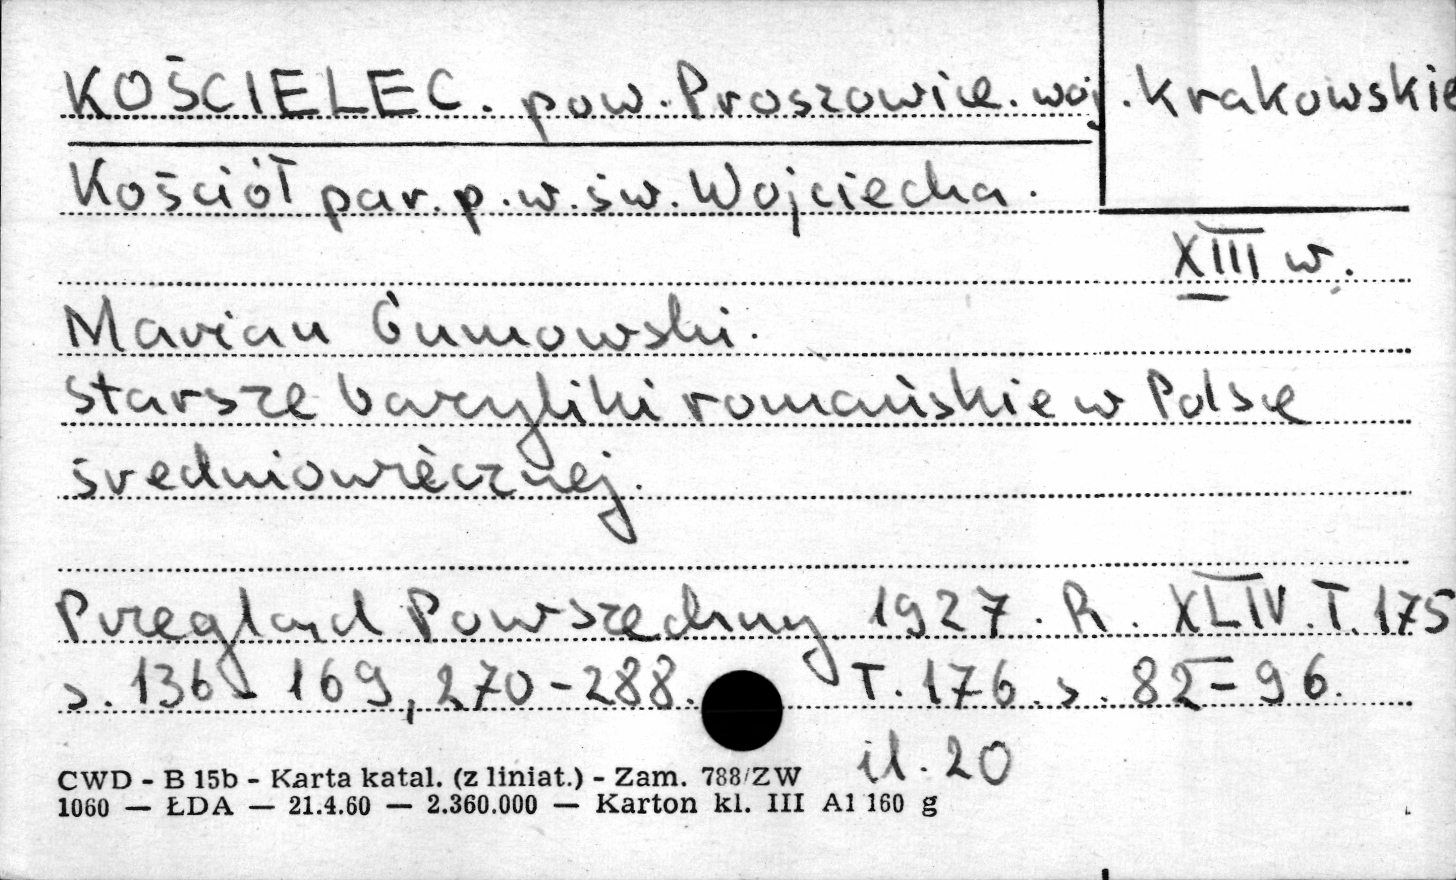 KOŚCIELEC. pow. Proszowice. woj. krakowskie
Kościół par. p.w. św. Wojciecha.
XIII w.
Marian Gumowski.
Starsze bazyliki romańskie w Polsce
średniowiecznej.
Przegląd Powszechny 1927. R. XLIV. T. 175
s. 136 - 169, 270-288. T. 176. s. 82-96.
il. 20
CWD - B 15b - Karta katal. (z liniat.) - Zam. 788/ZW
1060 — ŁDA — 21.4.60 — 2.360.000 — Karton kl. III A1 160 g